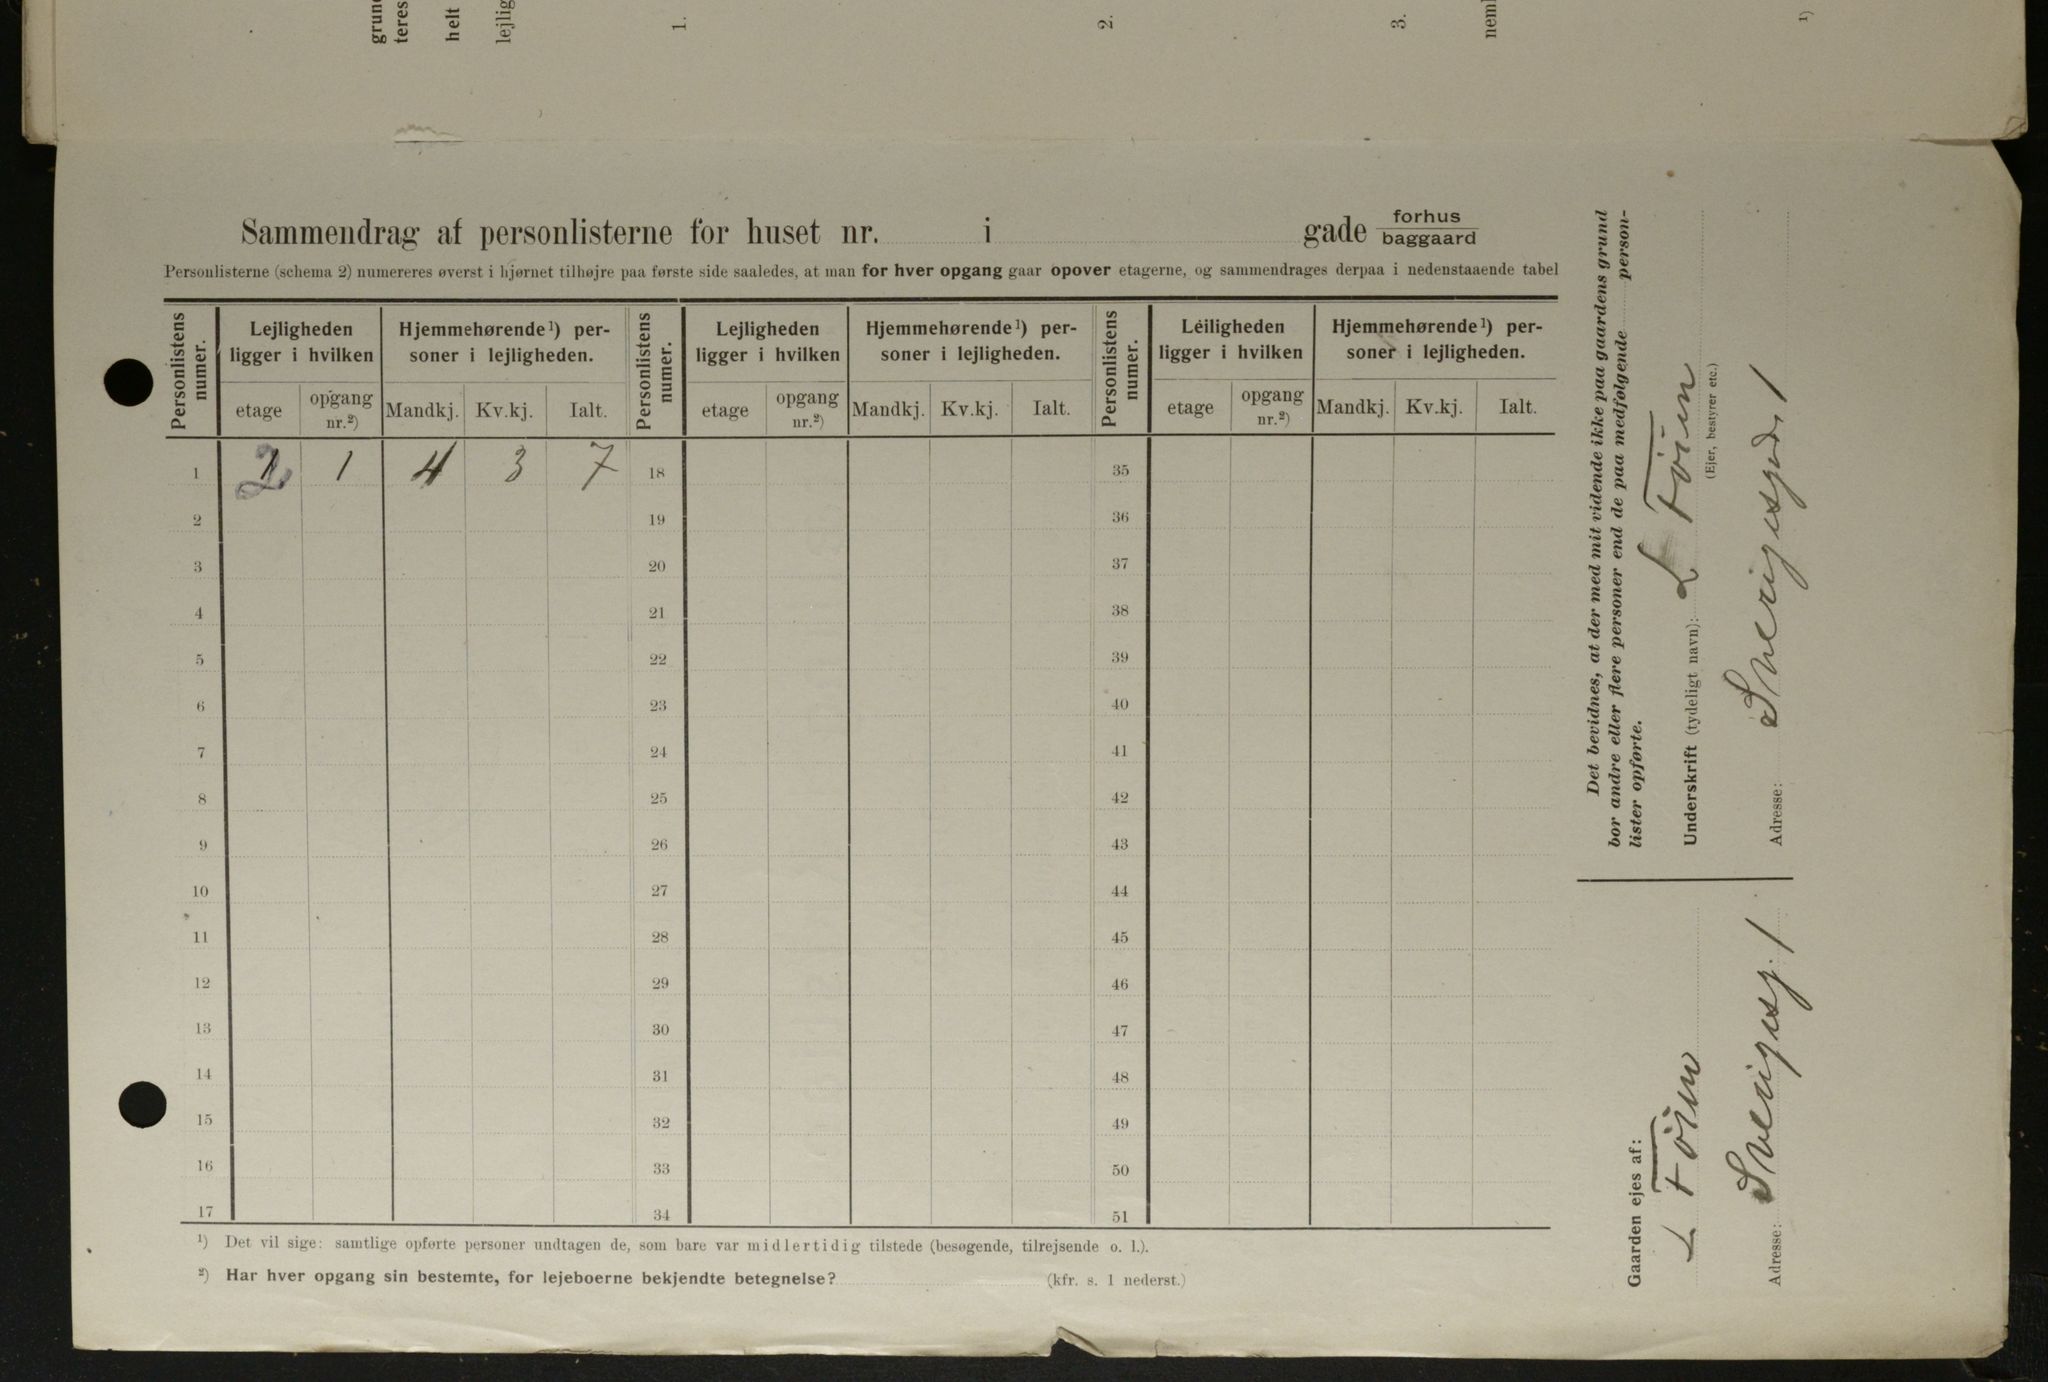 grun
teres
helt
lejlig
1.
2.
3.
neml
1)
Sammendrag af personlisterne for huset nr. i gade forhus
baggaard
Personlisterne (schema 2) numereres øverst i hjørnet tilhøjre paa første side saaledes, at man for hver opgang gaar opover etagerne, og sammendrages derpaa i nedenstaaende tabel
Personlistens numer. Lejligheden ligger i hvilken Hjemmehørende¹) personer i lejligheden. Personlistens numer. Lejligheden ligger i hvilken Hjemmehørende¹) personer i lejligheden. Personlistens numer. Léiligheden ligger i hvilken Hjemmehørende¹) personer i lejligheden.
etage opgang nr.²) Mandkj. Kv.kj. Ialt. etage opgang nr.²) Mandkj. Kv.kj. Ialt. etage opgang nr.²) Mandkj. Kv.kj. Ialt.
1 2 1 4 3 7 18 35
2 19 36
3 20 37
4 21 38
5 22 39
6 23 40
7 24 41
8 25 42
9 26 43
10 27 44
11 28 45
12 29 46
13 30 47
14 31 48
15 32 49
16 33 50
17 34 51
¹) Det vil sige: samtlige opførte personer undtagen de, som bare var midlertidig tilstede (besøgende, tilrejsende o. l.).
²) Har hver opgang sin bestemte, for lejeboerne bekjendte betegnelse? (kfr. s. 1 nederst.)
Det bevidnes, at der med mit vidende ikke paa gaardens grund
bor andre eller flere personer end de paa medfølgende person-
lister opførte.
Underskrift (tydeligt navn): L Föien
(Ejer, bestyrer etc.)
Adresse: Sverigesgd. 1
Gaarden ejes af:
L Föien
Adresse: Sverigesg. 1